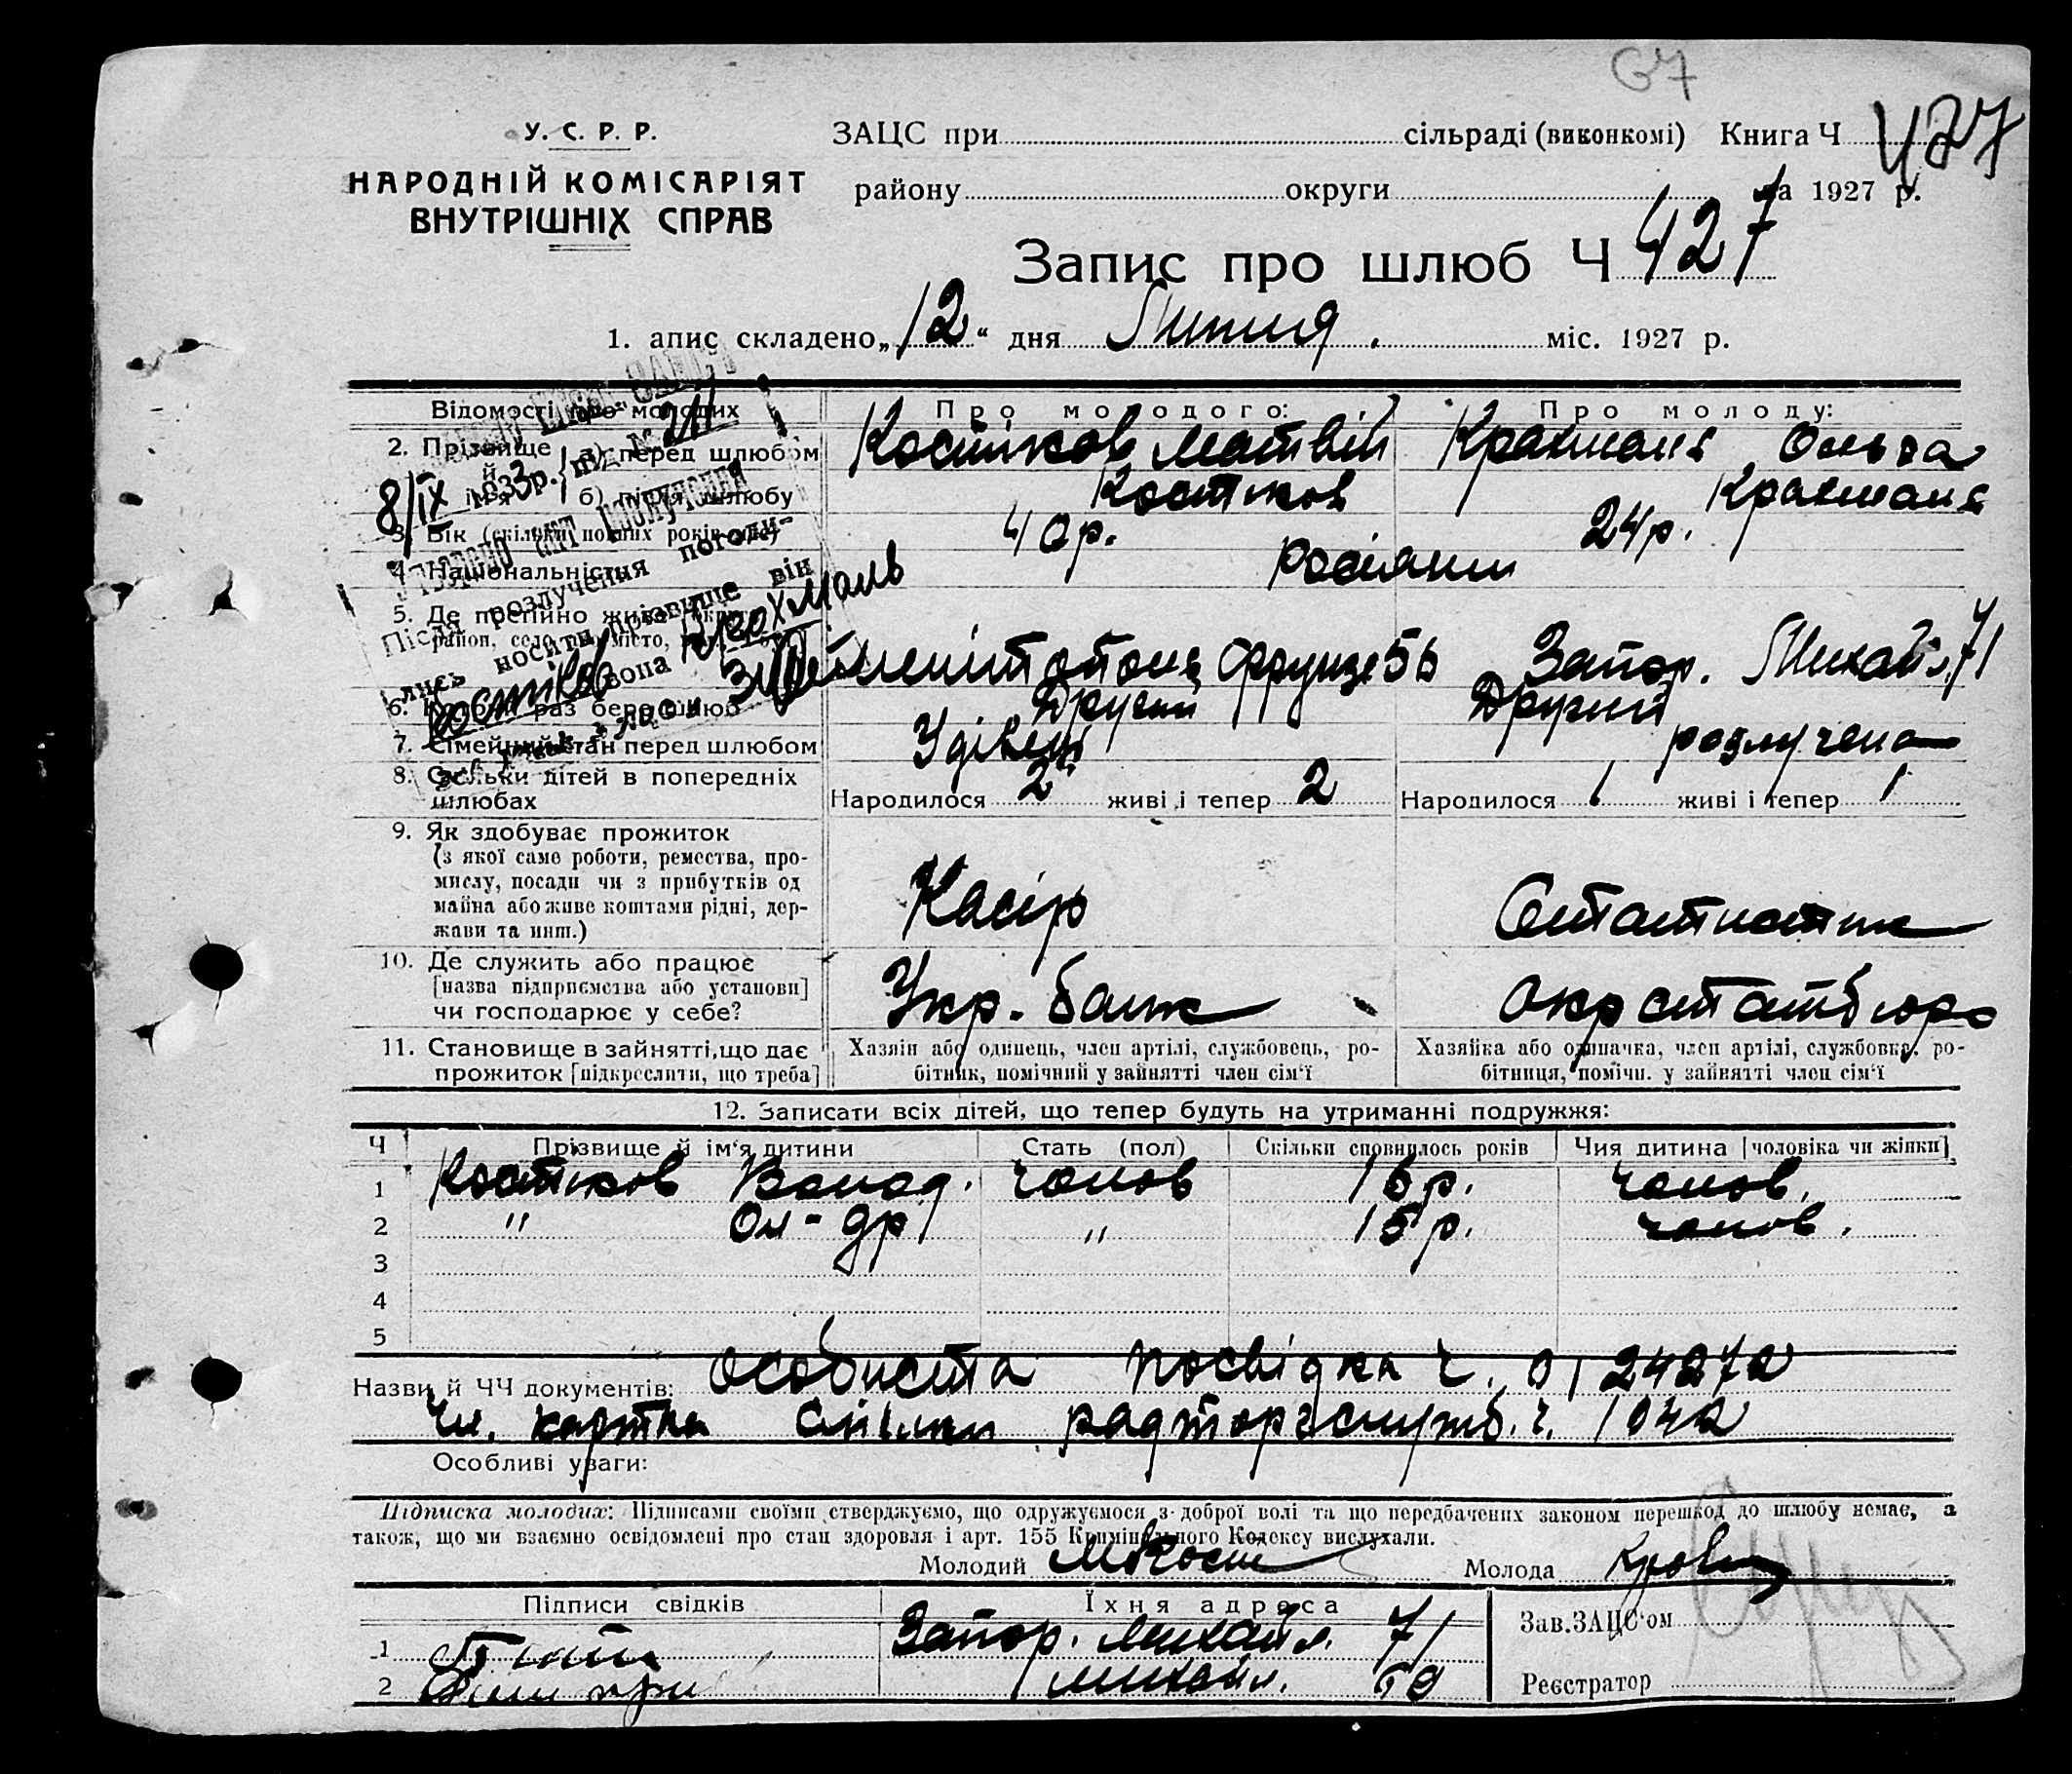 67
У. С. Р. Р.
НАРОДНІЙ КОМІСАРІЯТ
ВНУТРІШНІХ СПРАВ
ЗАЦС при сільраді (виконкомі) Книга Ч 427
району округи за 1927 р.
Запис про шлюб Ч 427
1. апис складено „12“ дня Липня міс. 1927 р.
Відомості про молодих
Про молодого:
Про молоду:
2. Прізвище й ім'я а) перед шлюбом
Костіков Матвій
Крахмаль Ольга
б) після шлюбу
Костіков
Крахмаль
3. Вік (скільки повних років має)
40р.
24р.
4. Національність
росіяни
5. Де постійно живе
район, село або місто,
Мелітополь Фрунзе 56
Запор. Михайл. 71
6. раз бере шлюб
Другий
Другий
7. Сімейний стан перед шлюбом
Удівець
розлучена
8. Скільки дітей в попередніх шлюбах
Народилося 2 живі і тепер 2
Народилося 1 живі і тепер 1
9. Як здобуває прожиток
(з якої саме роботи, ремества, про-
мислу, посади чи з прибутків од
майна або живе коштами рідні, дер-
жави та инш.)
Касір
Статистик
10. Де служить або працює
[назва підприємства або установи]
чи господарює у себе?
Укр. банк
Окрстатбюро
11. Становище в зайнятті, що дає
прожиток [підкреслити, що треба]
Хазяїн або одинець, член артілі, службовець, ро-
бітник, помічний у зайнятті член сім'ї
Хазяйка або одиначка, член артілі, службовка, ро-
бітниця, помічн. у зайнятті член сім'ї
8/IX 1933р. під № 211
Після розлучення погоди-
лись носити прізвище він
Костіков вона Крахмаль
12. Записати всіх дітей, що тепер будуть на утриманні подружжя:
Ч Прізвище й ім'я дитини Стать (пол) Скільки сповнилось років Чия дитина [чоловіка чи жінки]
1 Костіков чолов 16р. чолов.
2 " Ол-др " 15р. чолов.
3
4
5
Назви й ЧЧ документів: Особиста посвідка ч. 01 24272
Чл. картка спілки радторгслужб. ч. 1042
Особливі уваги:
Підписка молодих: Підписами своїми стверджуємо, що одружуємося з доброї волі та що передбачених законом перешкод до шлюбу немає, а
також, що ми взаємно освідомлені про стан здоровля і арт. 155 Кримінального Кодексу вислухали.
Молодий
Молода
Підписи свідків
Їхня адреса
1 Запор. Михайл. 71
2 Михайл. 69
Зав. ЗАЦС'ом
Реєстратор